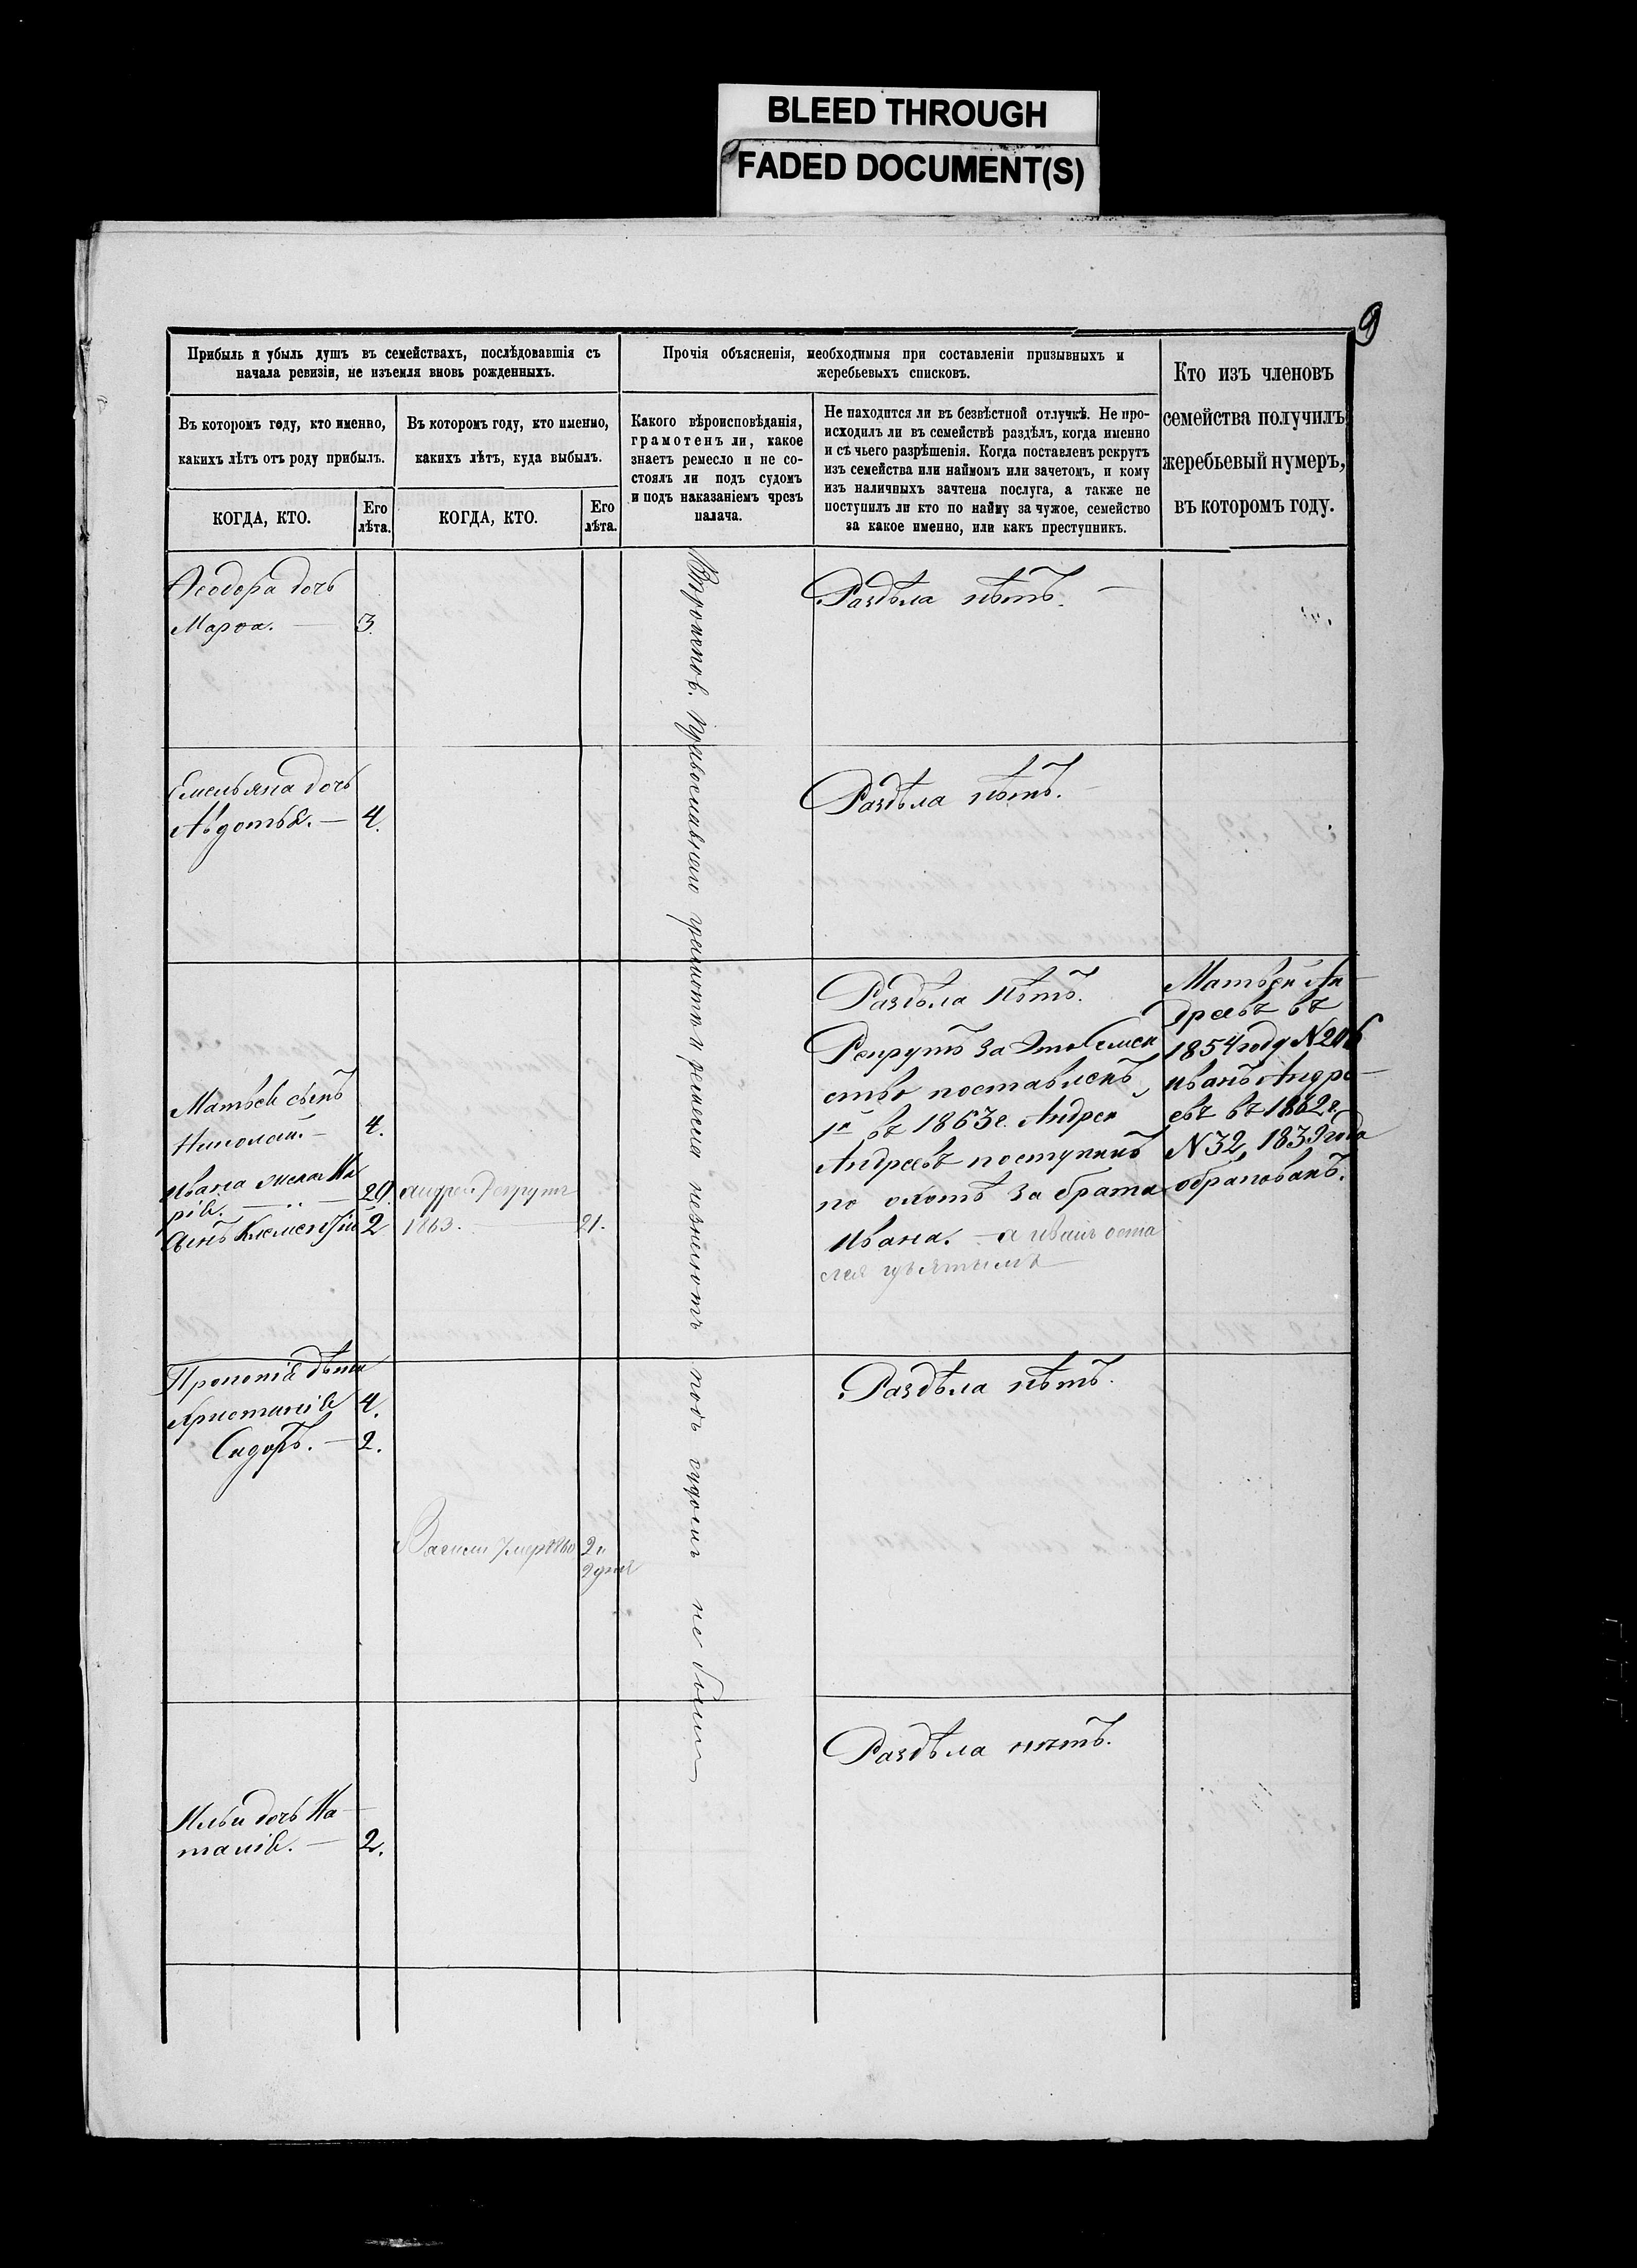 BLEED THROUGH
FADED DOCUMENT(S)
9
Прибыль и убыль душъ въ семействахъ, послѣдовавшія съ
начала ревизіи, не изъемля вновь рожденныхъ.
Въ которомъ году, кто именно,
какихъ лѣтъ отъ роду прибылъ.
КОГДА, КТО.
Его
лѣта.
Въ которомъ году, кто именно,
какихъ лѣтъ, куда выбылъ.
КОГДА, КТО.
Его
лѣта.
Прочія объясненія, необходимыя при составленіи призывныхъ и
жеребьевыхъ списковъ.
Какого вѣроисповѣданія,
грамотенъ ли, какое
знаетъ ремесло и не со-
стоялъ ли подъ судомъ
и подъ наказаніемъ чрезъ
палача.
Не находится ли въ безвѣстной отлучкѣ. Не про-
исходилъ ли въ семействѣ раздѣлъ, когда именно
и съ чьего разрѣшенія. Когда поставленъ рекрутъ
изъ семейства или наймомъ или зачетомъ, и кому
изъ наличныхъ зачтена послуга, а также не
поступилъ ли кто по найму за чужое, семейство
за какое именно, или какъ преступникъ.
Кто изъ членовъ
семейства получилъ
жеребьевый нумеръ,
въ которомъ году.
Ѳеодора дочь
Марѳа. — 3.
Раздѣла нѣтъ. —
Емельяна дочь
Авдотья. — 4.
Раздѣла нѣтъ. —
Матвея сынъ
Николай. — 4.
Ивана жена Ма
рія. — 20.
Сынъ Климентій 2
Андрей рекрутъ
1863. — 21.
Раздѣла нѣтъ.
Рекрутъ за это семей
ство поставленъ
въ 1863 г. Андрей
Андреевъ поступилъ
по охотѣ за брата
Ивана. — а Иванъ оста
лся
Матвѣй Ан
дреевъ въ
1854 году N 206
Иванъ Андре
евъ въ 1862 г.
N 32, 1839 года
обракованъ.
Прокопія дѣти
Христинія 4.
Сидоръ. — 2.
Василій умеръ 1860
2 дня
Раздѣла нѣтъ.
Ильи дочь На
талія. — 2.
Раздѣла нѣтъ.
Православнаго грамотѣ и ремесла незнаютъ подъ судомъ не были